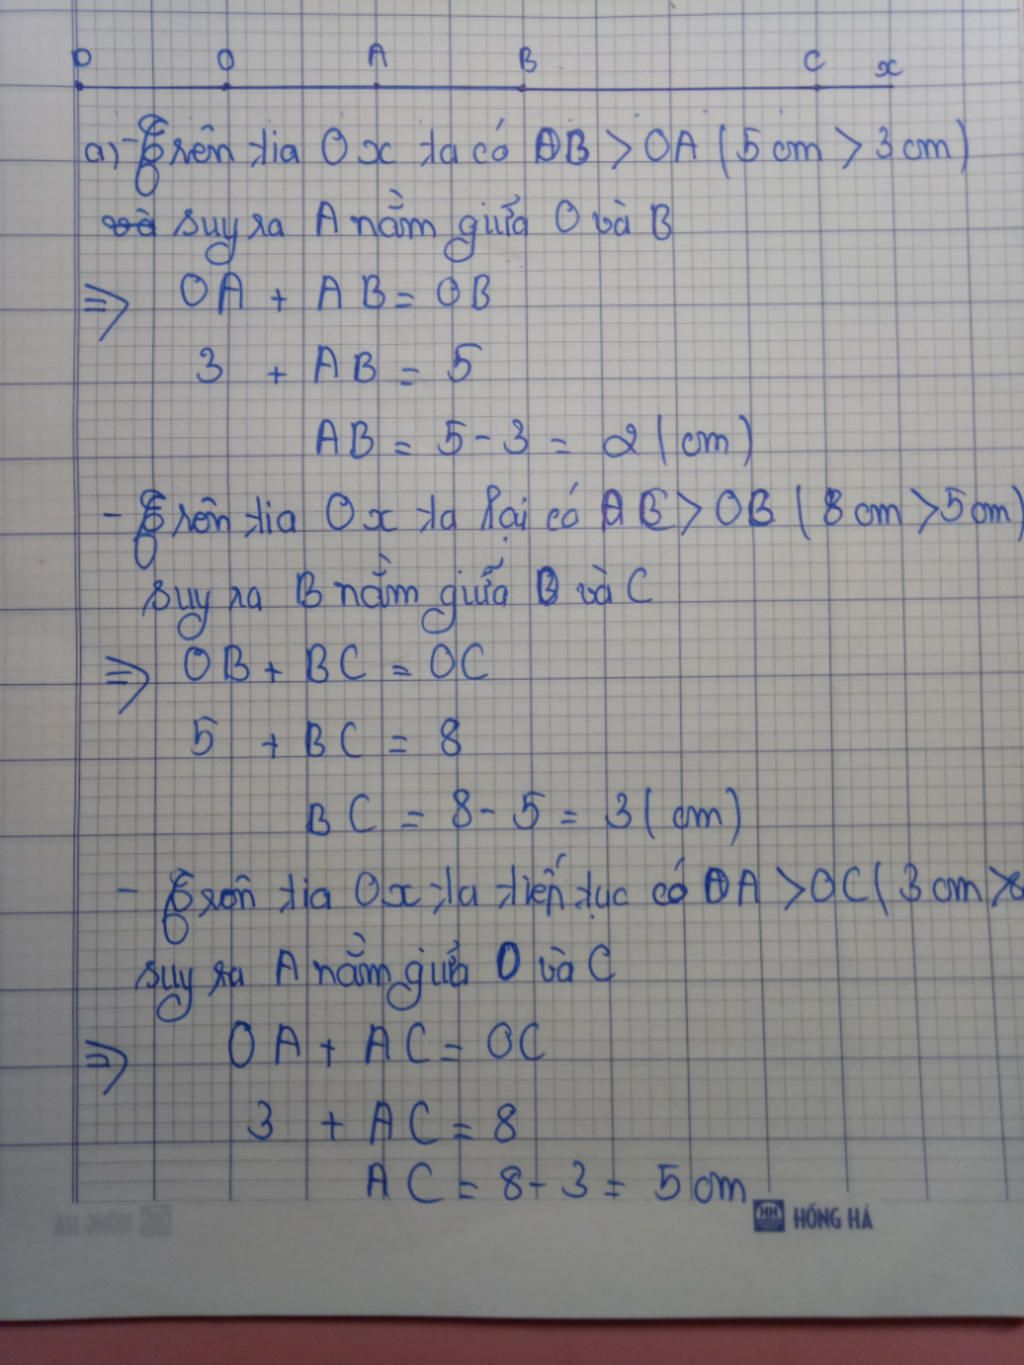 D O A B C x
a) - Trên tia Ox ta có OB > OA (5 cm > 3 cm)
suy ra A nằm giữa O và B
=> OA + AB = OB
3 + AB = 5
AB = 5 - 3 = 2 (cm)
- Trên tia Ox ta lại có OC > OB (8 cm > 5 cm)
suy ra B nằm giữa O và C
=> OB + BC = OC
5 + BC = 8
BC = 8 - 5 = 3 (cm)
- Trên tia Ox ta tiếp tục có OA > OC (3 cm > 8
suy ra A nằm giữa O và C
=> OA + AC = OC
3 + AC = 8
AC = 8 - 3 = 5 cm
HH HỒNG HÀ